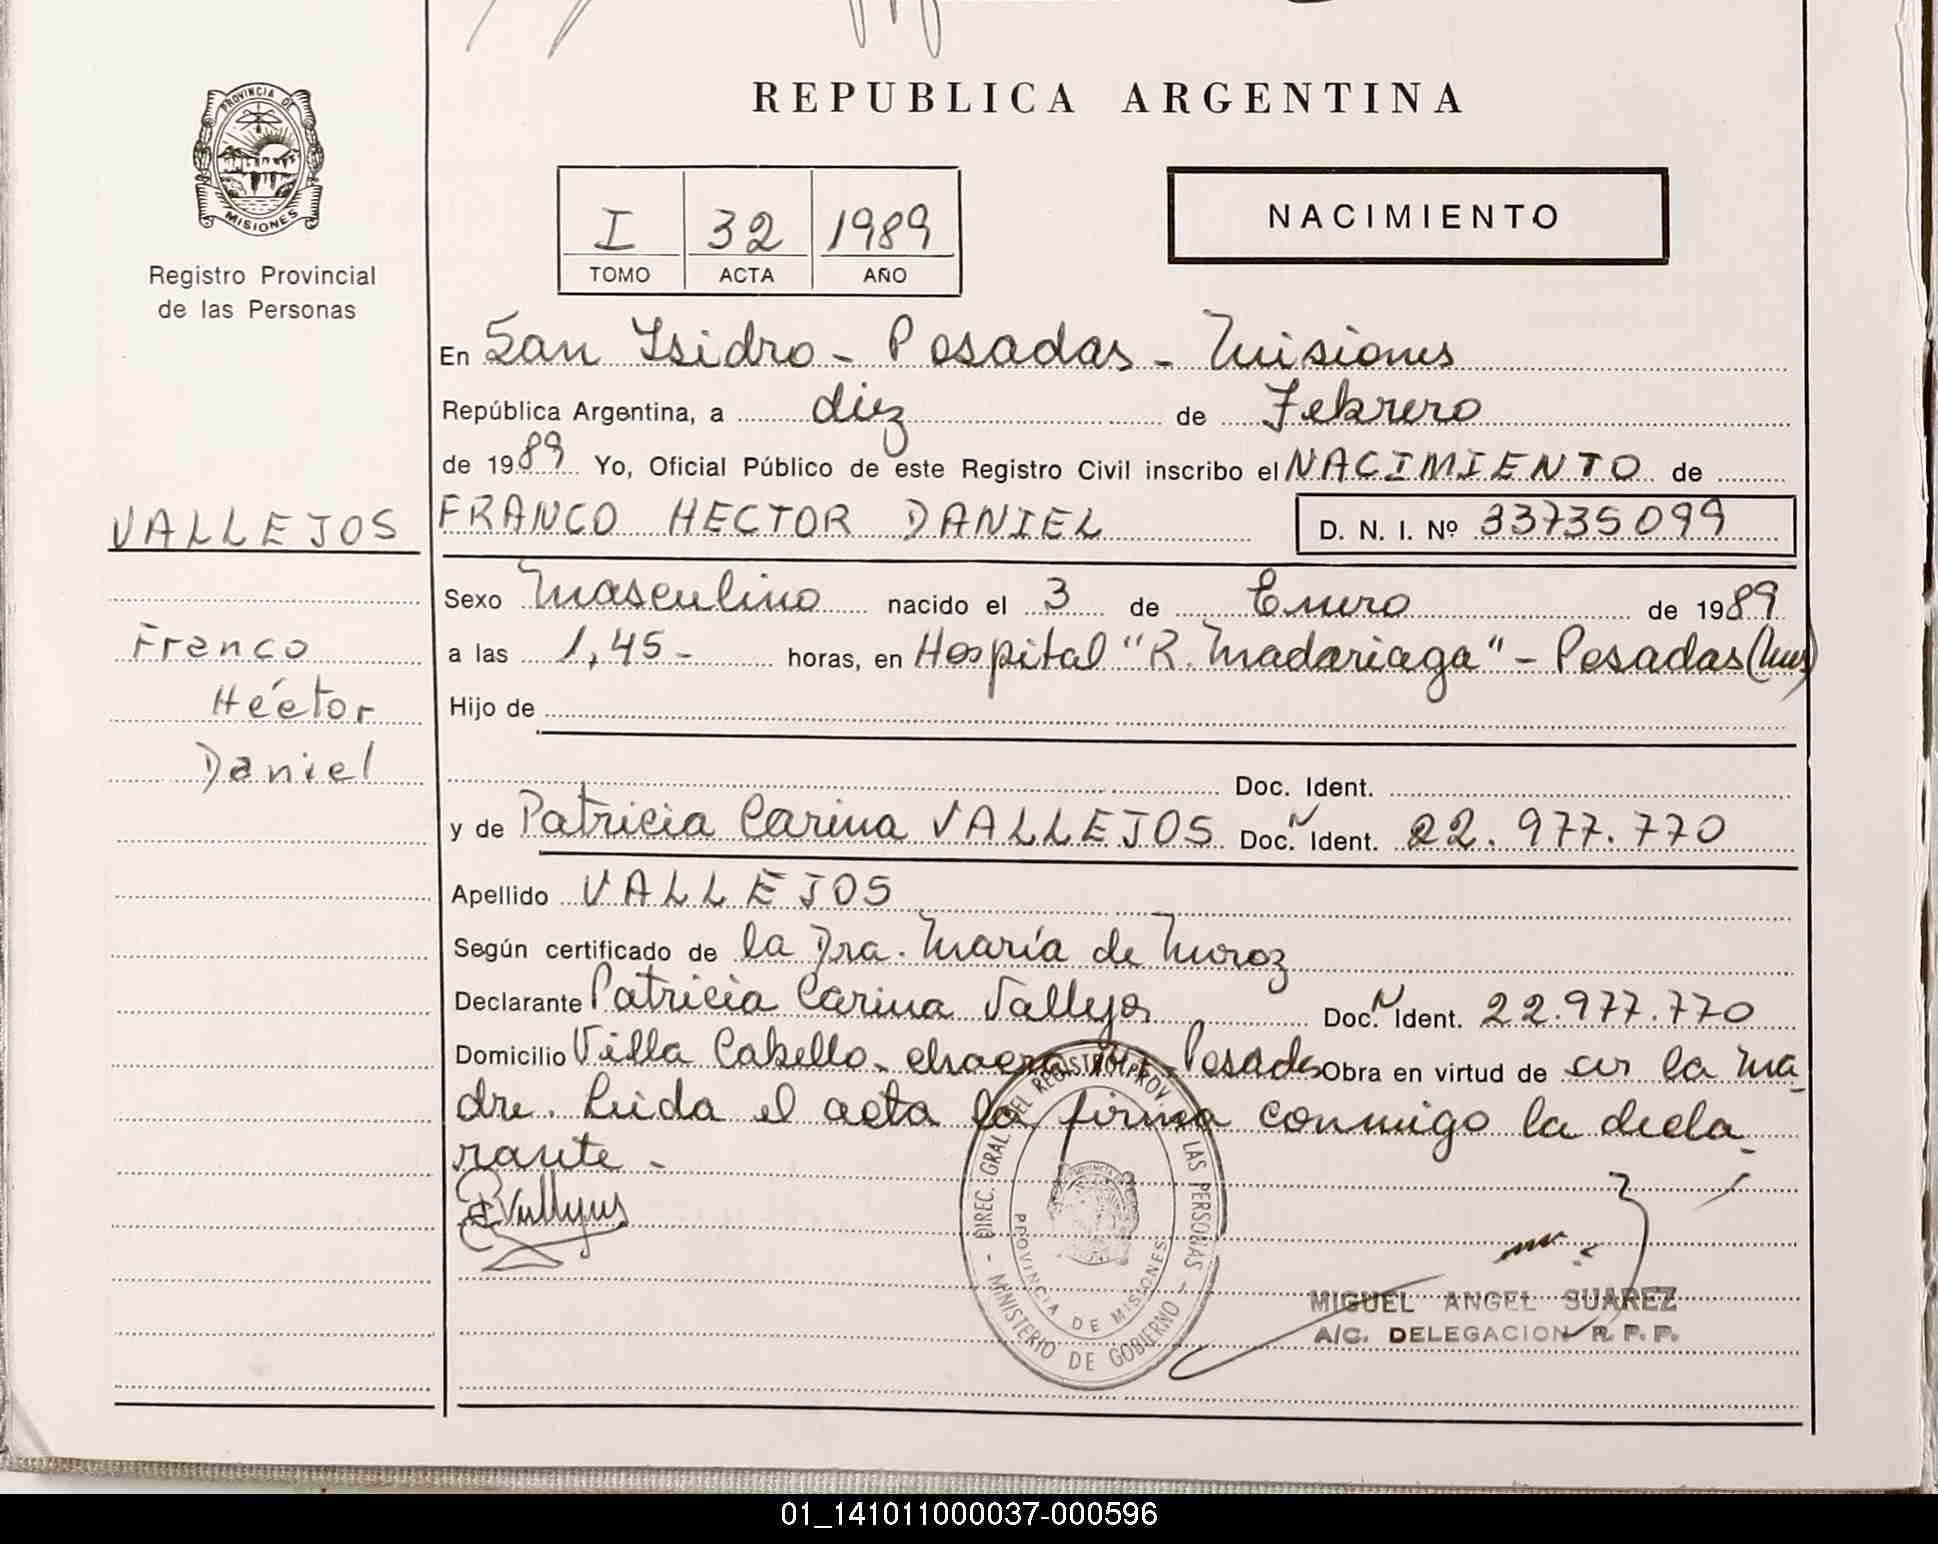 REPUBLICA ARGENTINA
PROVINCIA DE
MISIONES
Registro Provincial
de las Personas
I 32 1989
TOMO ACTA AÑO
NACIMIENTO
En San Isidro - Posadas - Misiones
República Argentina, a diez de Febrero
de 1989 Yo, Oficial Público de este Registro Civil inscribo el NACIMIENTO de
VALLEJOS
FRANCO HECTOR DANIEL D. N. I. Nº 33735099
Sexo Masculino nacido el 3 de Enero de 1989
Franco
a las 1,45 - horas, en Hospital "R. Madariaga" - Posadas (Mnes)
Héctor
Hijo de
Daniel
Doc. Ident.
y de Patricia Carina VALLEJOS Doc. N Ident. 22.977.770
Apellido VALLEJOS
Según certificado de la Dra. María de Moroz
Declarante Patricia Carina Vallejos Doc. N Ident. 22.977.770
Domicilio Villa Cabello - chacra - Posadas Obra en virtud de ser la ma-
dre. Leida el acta la firma conmigo la decla-
rante -
DIREC. GRAL. DEL REGISTRO PROV. DE LAS PERSONAS
PROVINCIA DE MISIONES
- MINISTERIO DE GOBIERNO -
MIGUEL ANGEL SUAREZ
A/C. DELEGACION R. P. P.
01_141011000037-000596